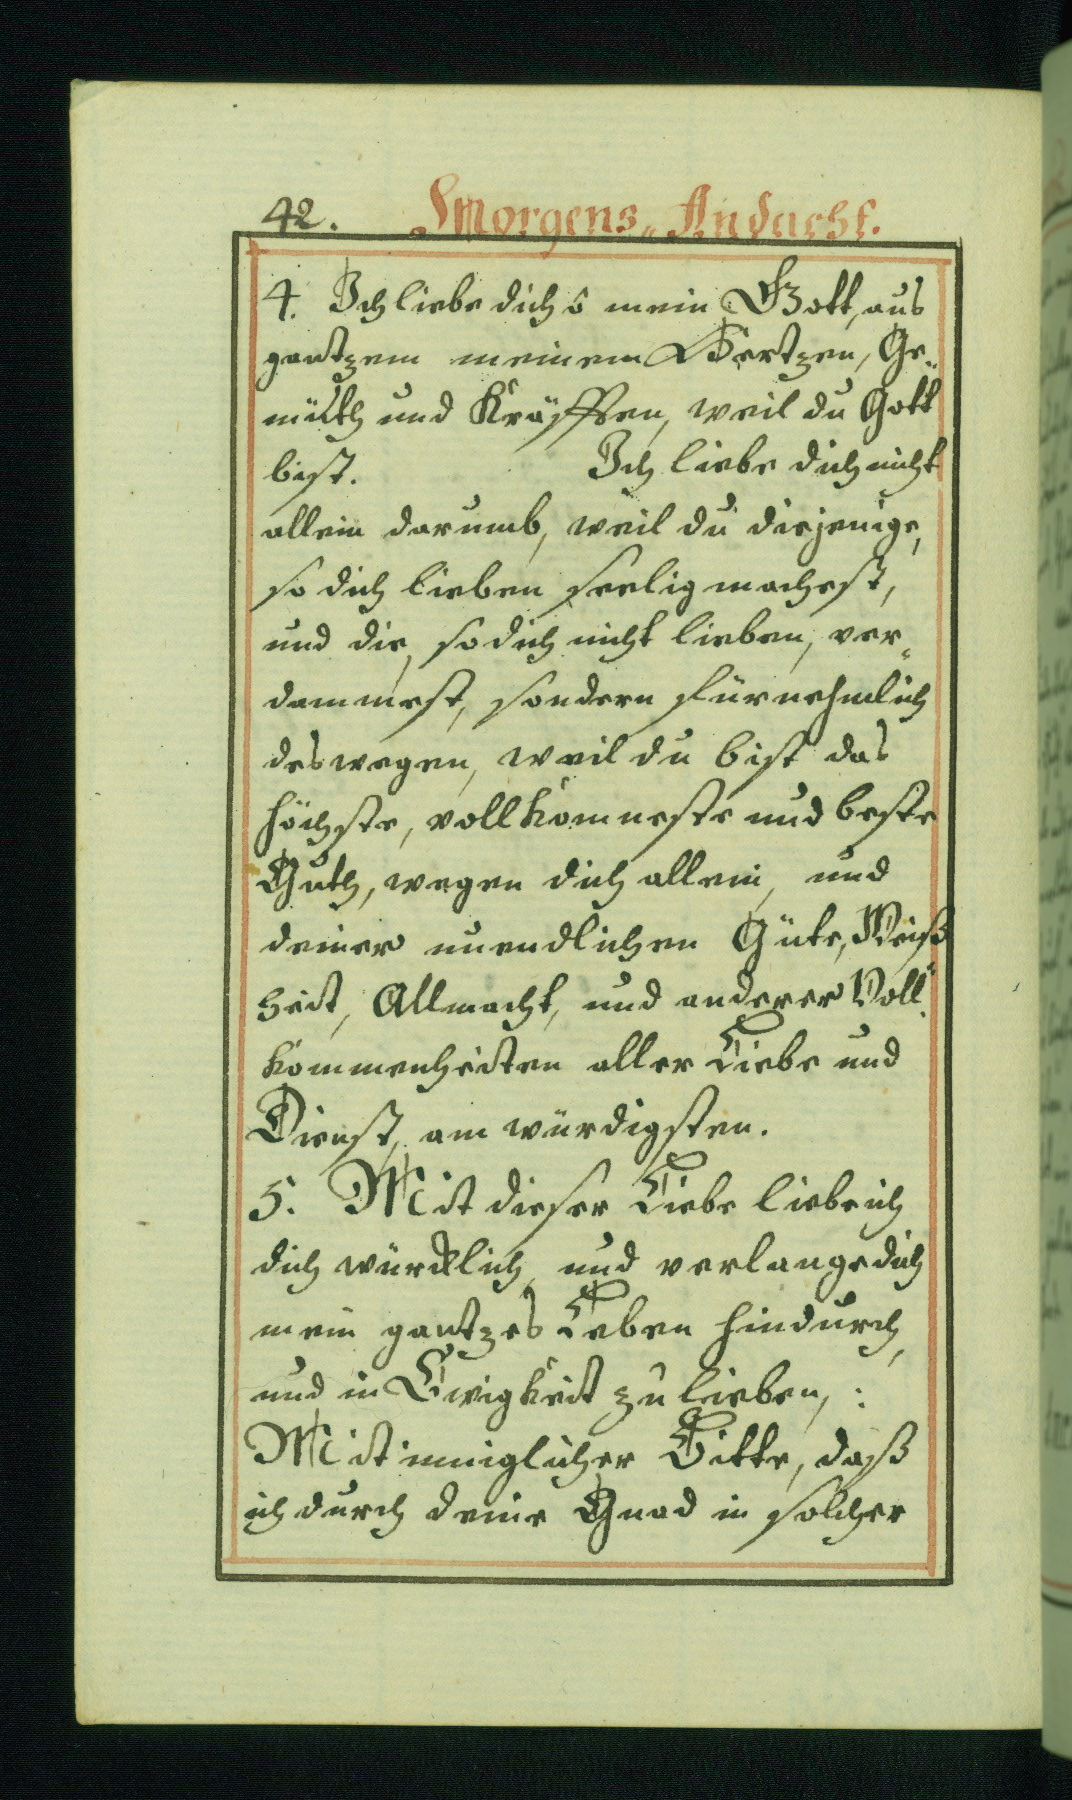 42. Morgens-Andacht.
4. Ich liebe dich ô mein Gott, aus
gantzem meinem Hertzen, Ge-
müth und Kräfften, weil du Gott
bist. Ich liebe dich nicht
allein darumb, weil du diejenige,
so dich lieben seelig machest,
und die, so dich nicht lieben, ver-
dammest, sondern fürnehmlich
deswegen, weil du bist das
höchste, vollkomneste und beste
Guth, wegen dich allein, und
deiner unendlichen Güte, Weiß-
heit, Allmacht, und anderer Voll-
kommenheiten aller Liebe und
Dienst, am würdigsten.
5. Mit dieser Liebe liebe ich
dich würcklich, und verlange dich
mein gantzes Leben hindurch,
und in Ewigkeit zu lieben, :
Mit inniglicher Bitte, daß
ich durch deine Gnad in solcher